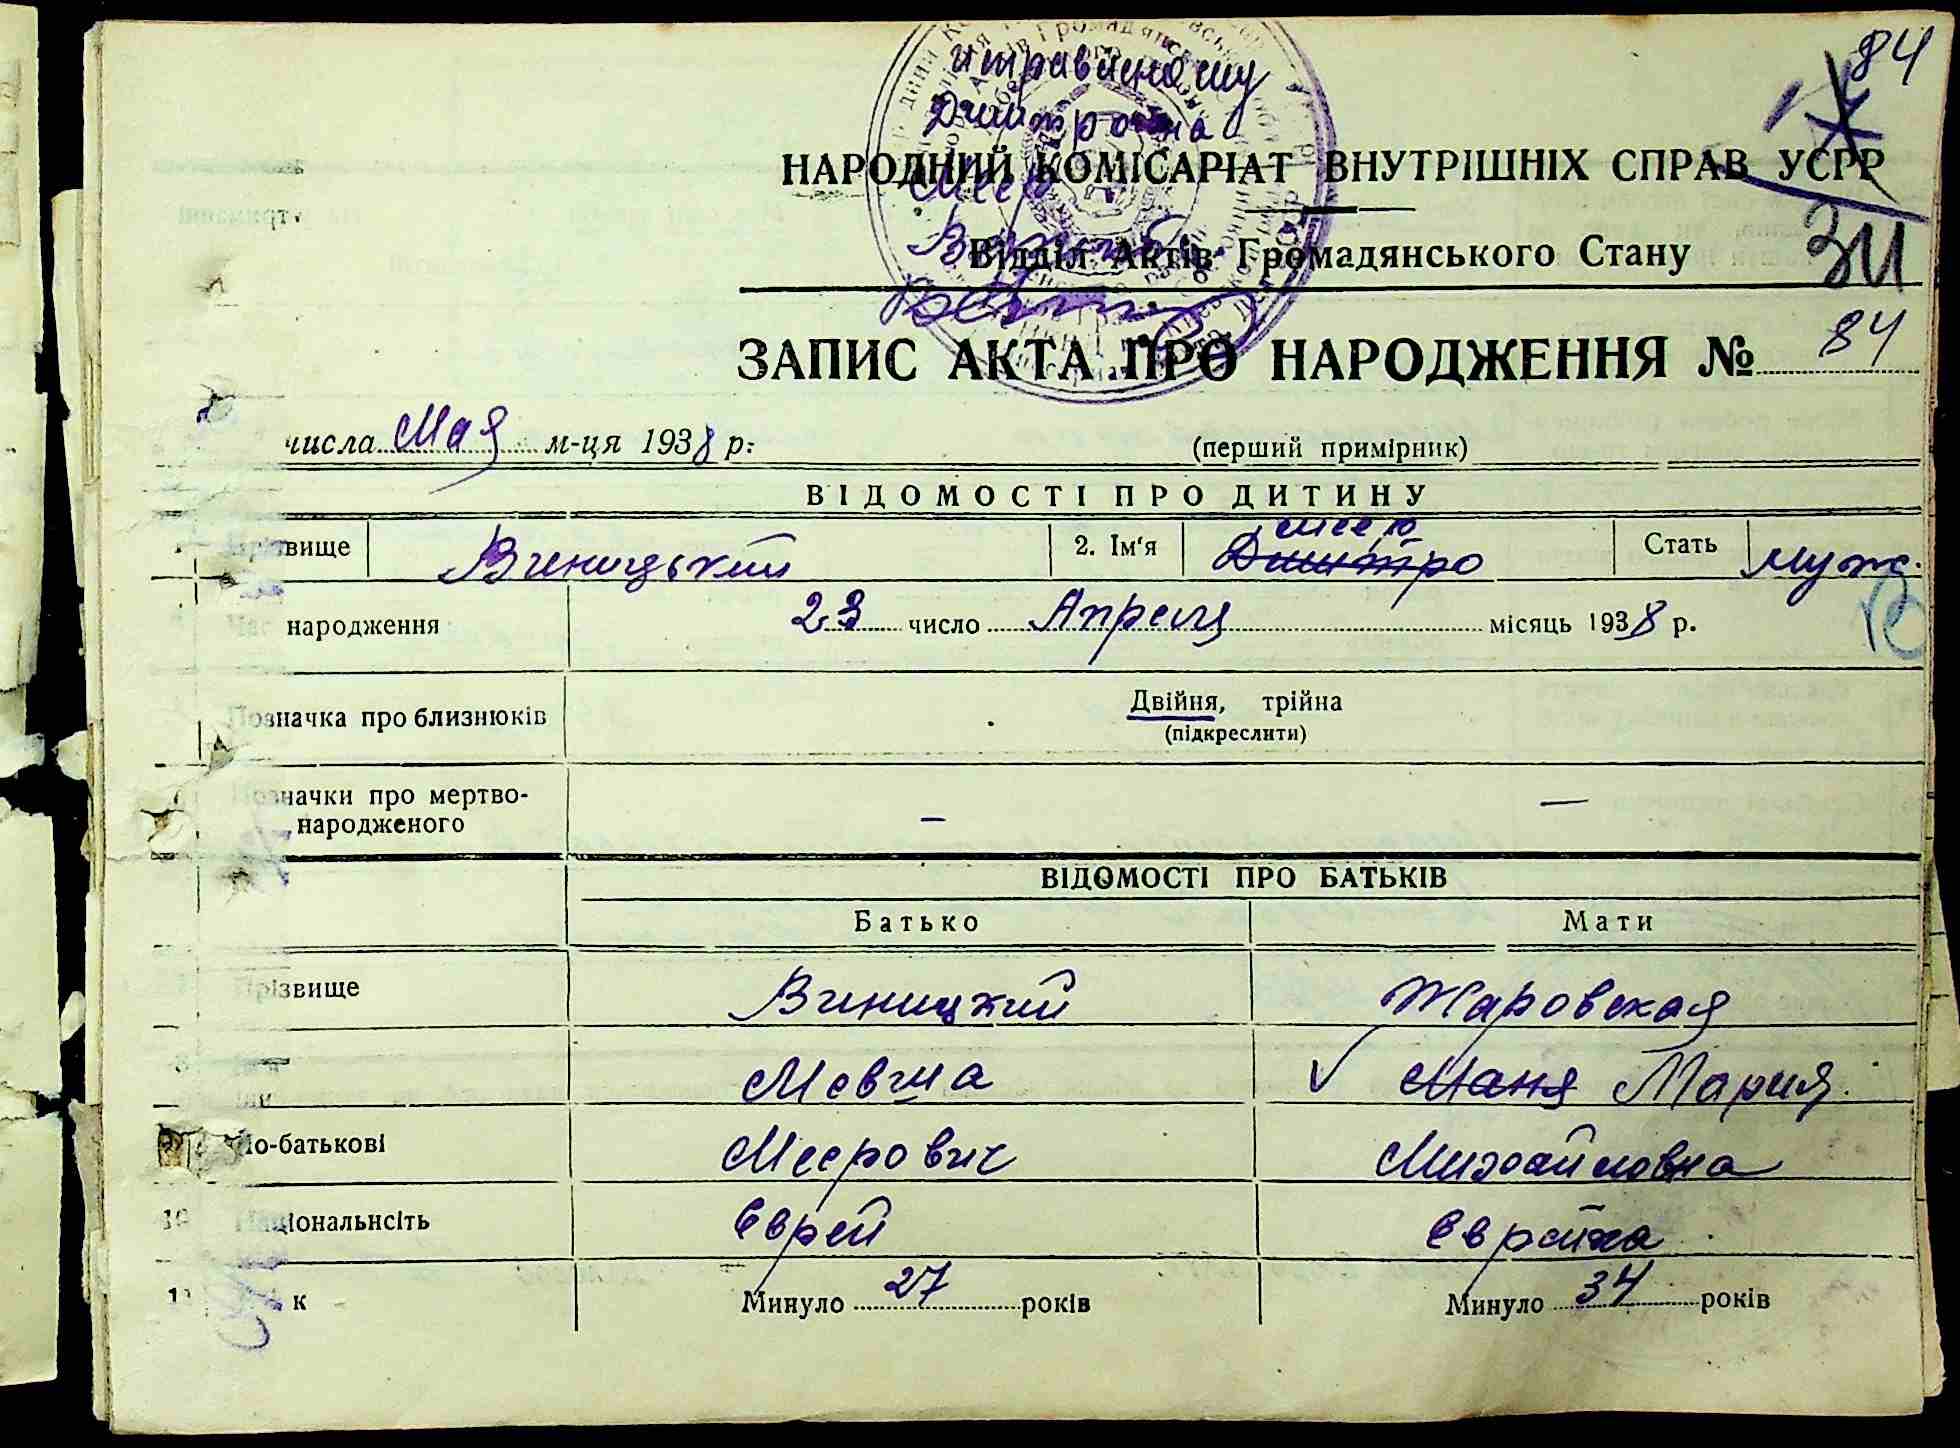 84
исправленому
Дмитро на
Меер
НАРОДНИЙ КОМІСАРІАТ ВНУТРІШНІХ СПРАВ УСРР
Відділ Актів Громадянського Стану
ЗАПИС АКТА ПРО НАРОДЖЕННЯ № 84
числа Мая м-ця 1938 р.
(перший примірник)
ВІДОМОСТІ ПРО ДИТИНУ
Прізвище Виницький 2. Ім'я Дмитро Меер Стать муж.
Час народження 23 число Апреля місяць 1938 р.
Позначка про близнюків Двійня, трійна
(підкреслити)
Позначки про мертво-
народженого — —
ВІДОМОСТІ ПРО БАТЬКІВ
Батько Мати
Прізвище Виницкий Жаровская
Мевша Маня Мария
По-батькові Меерович Михайловна
10 Національнсіть Єврей Еврейка
11 к Минуло 27 років Минуло 34 років